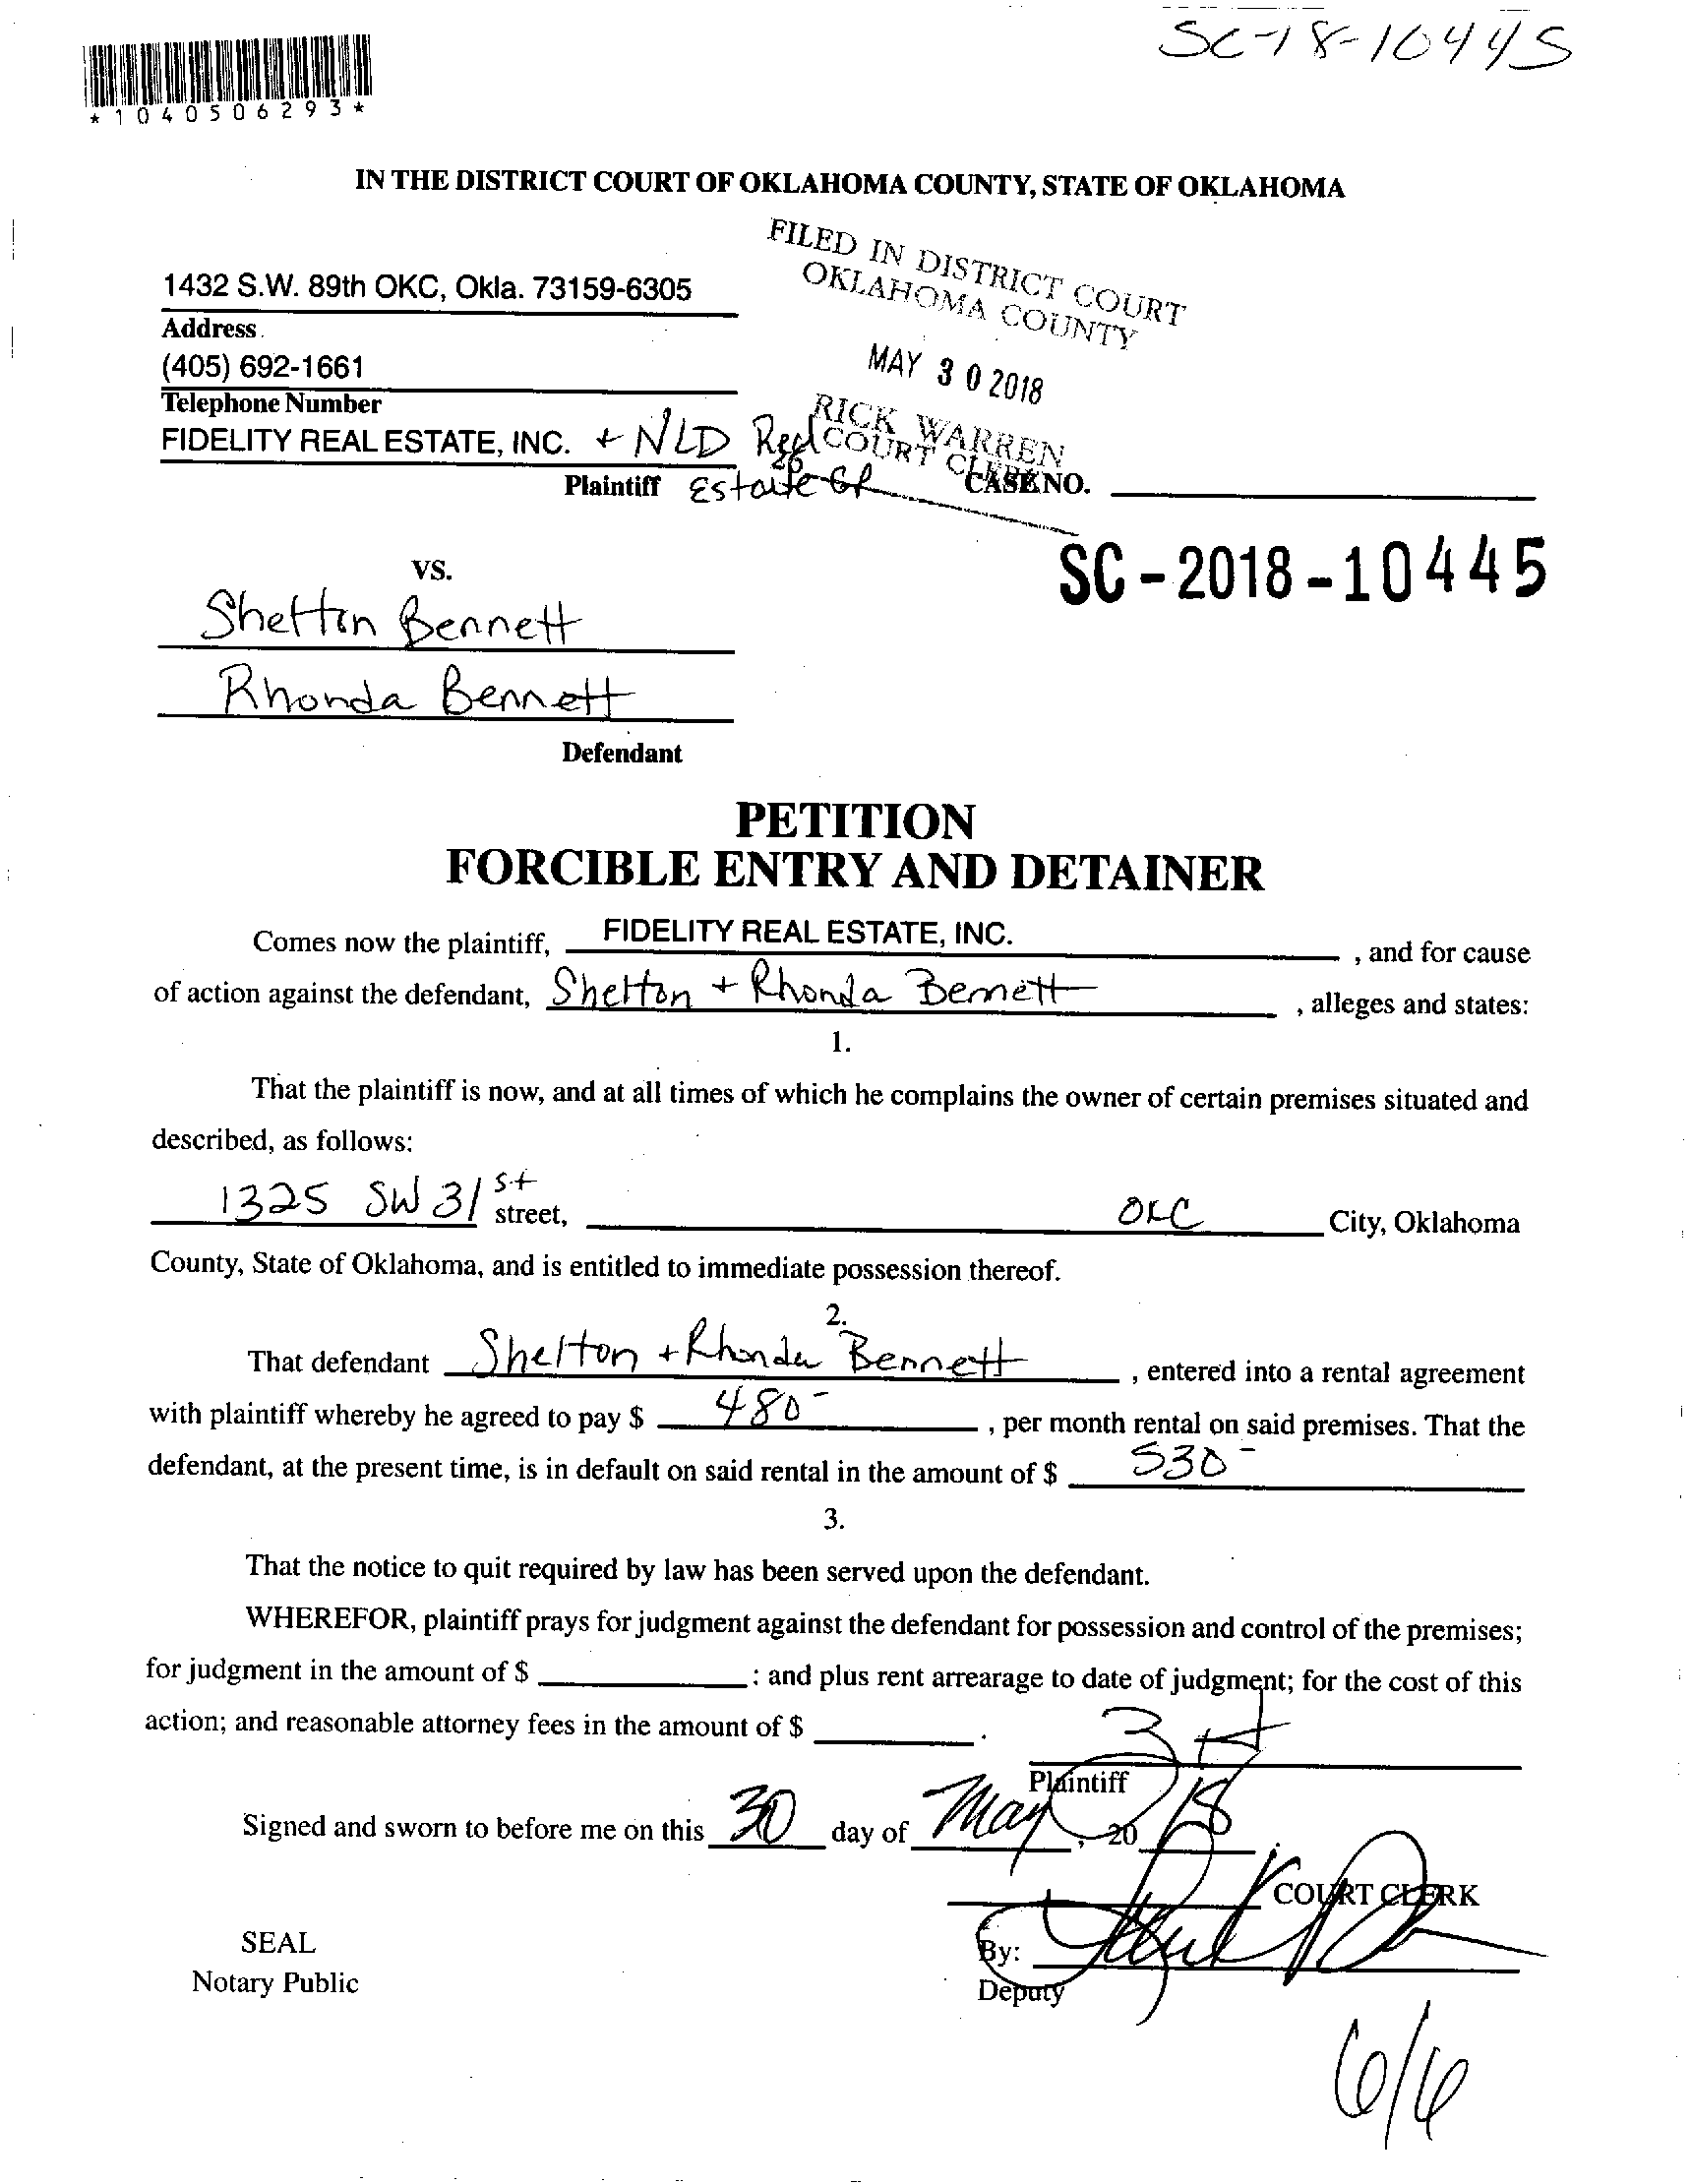 SC-18-10445
*1040506293*
IN THE DISTRICT COURT OF OKLAHOMA COUNTY, STATE OF OKLAHOMA
FILED IN DISTRICT COURT
OKLAHOMA COUNTY
MAY 30 2018
RICK WARREN
COURT CLERK
1432 S.W. 89th OKC, Okla. 73159-6305
Address
(405) 692-1661
Telephone Number
FIDELITY REAL ESTATE, INC. + NLD Real
Plaintiff Estate GR
CASE NO.
SC-2018-10445
VS.
Shelton Bennett
Rhonda Bennett
Defendant
PETITION
FORCIBLE ENTRY AND DETAINER
Comes now the plaintiff, FIDELITY REAL ESTATE, INC. , and for cause
of action against the defendant, Shelton + Rhonda Bennett , alleges and states:
1.
That the plaintiff is now, and at all times of which he complains the owner of certain premises situated and
described, as follows:
1325 SW 31st street, OKC City, Oklahoma
County, State of Oklahoma, and is entitled to immediate possession thereof.
2.
That defendant Shelton + Rhonda Bennett , entered into a rental agreement
with plaintiff whereby he agreed to pay $ 480- , per month rental on said premises. That the
defendant, at the present time, is in default on said rental in the amount of $ 530-
3.
That the notice to quit required by law has been served upon the defendant.
WHEREFOR, plaintiff prays for judgment against the defendant for possession and control of the premises;
for judgment in the amount of $ : and plus rent arrearage to date of judgment; for the cost of this
action; and reasonable attorney fees in the amount of $ .
Plaintiff
Signed and sworn to before me on this 30 day of May , 20 18 .
COURT CLERK
SEAL
By:
Notary Public
Deputy
6/6